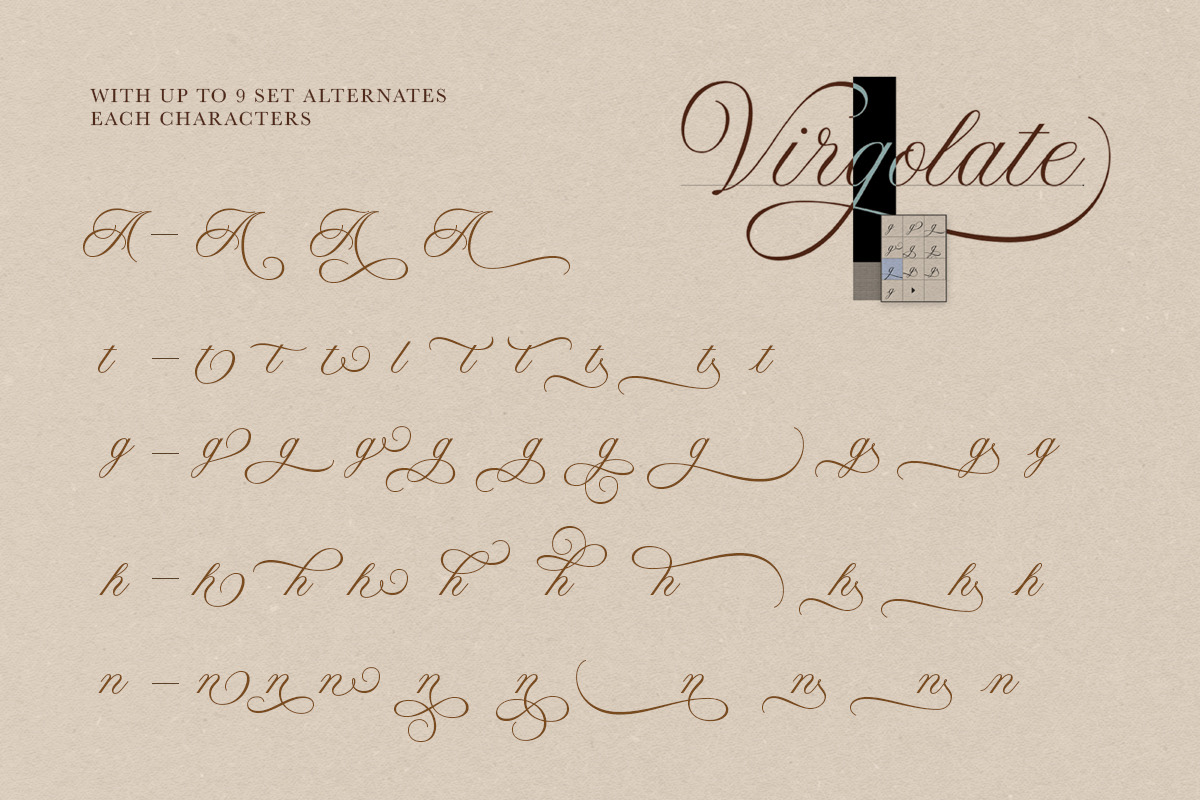 WITH UP TO 9 SET ALTERNATES
EACH CHARACTERS
Virgolate
A — A A A
t — t t t l t t ts ts t
g — g g g g g g g gs gs g
h — h h h h h h hs hs h
n — n n n n n n ns ns n